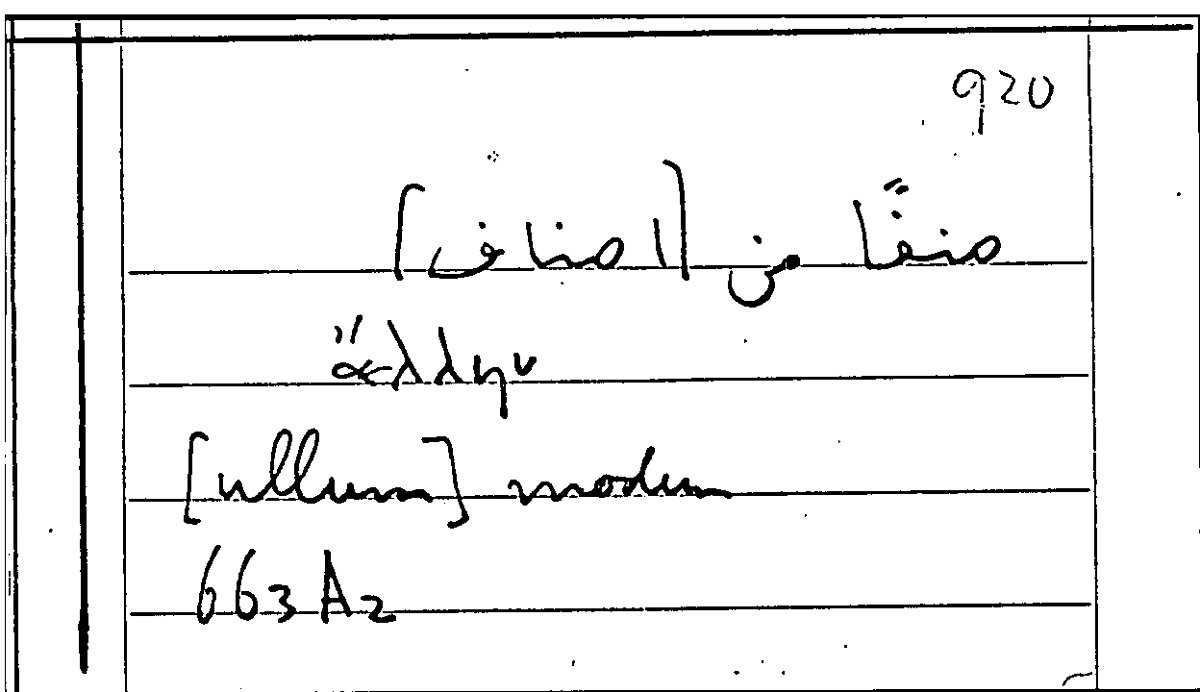 920
صنفًا من [اصناف]
ἄλλην
[ullum] modum
663 A2